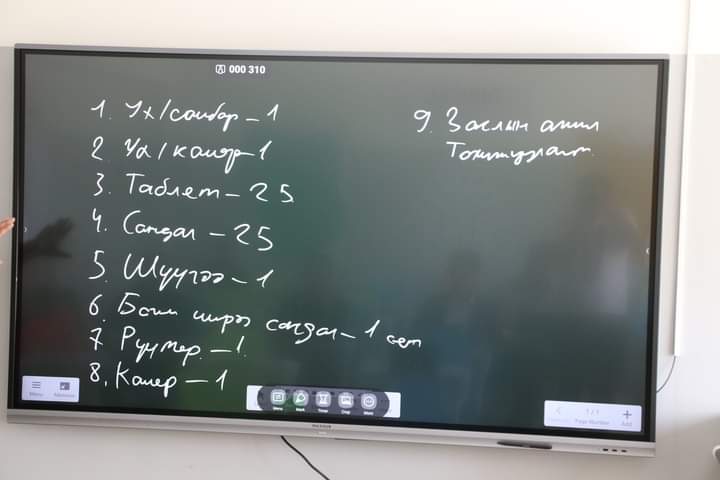 000 310
1. Ух/самбар – 1
2. Ух/камер – 1
3. Таблет – 25
4. Сандал – 25
5. Шүүгээ – 1
6. Багш ширээ сандал – 1 сет
7. Руутер – 1
8. Камер – 1
9. Заслын ажил
Тохижуулалт.
Menu
1 / 1
Page Number
Add